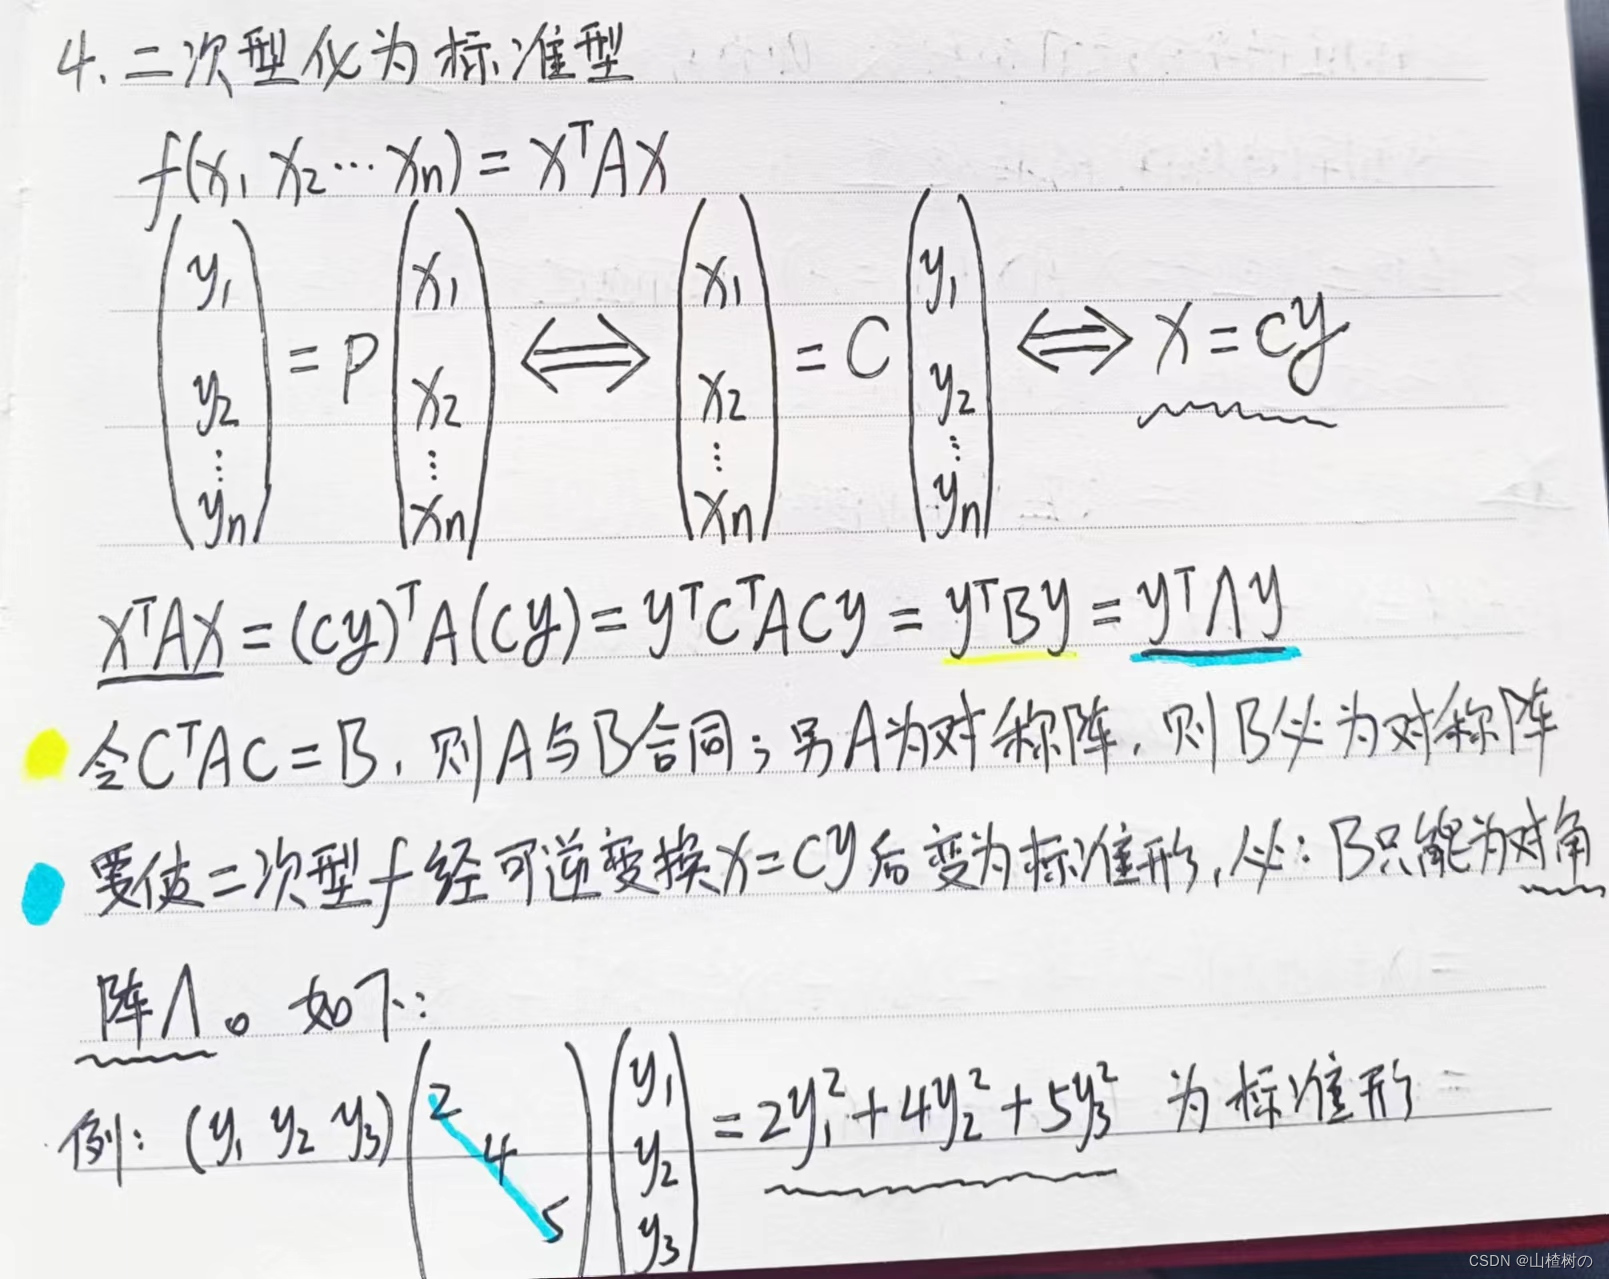 4. 二次型化为标准型
f(x₁ x₂ ⋯ xₙ) = xᵀAx
(y₁ y₂ ⋮ yₙ) = P (x₁ x₂ ⋮ xₙ) ⟺ (x₁ x₂ ⋮ xₙ) = C (y₁ y₂ ⋮ yₙ) ⟺ x = cy
xᵀAx = (cy)ᵀA(cy) = yᵀCᵀACy = yᵀBy = yᵀΛy
令CᵀAC = B, 则A与B合同; 另A为对称阵, 则B必为对称阵
要使二次型f经可逆变换x=Cy后变为标准形, 必: B只能为对角
阵Λ。如下:
例: (y₁ y₂ y₃) (2 4 5) (y₁ y₂ y₃) = 2y₁² + 4y₂² + 5y₃² 为标准形
CSDN @山楂树の